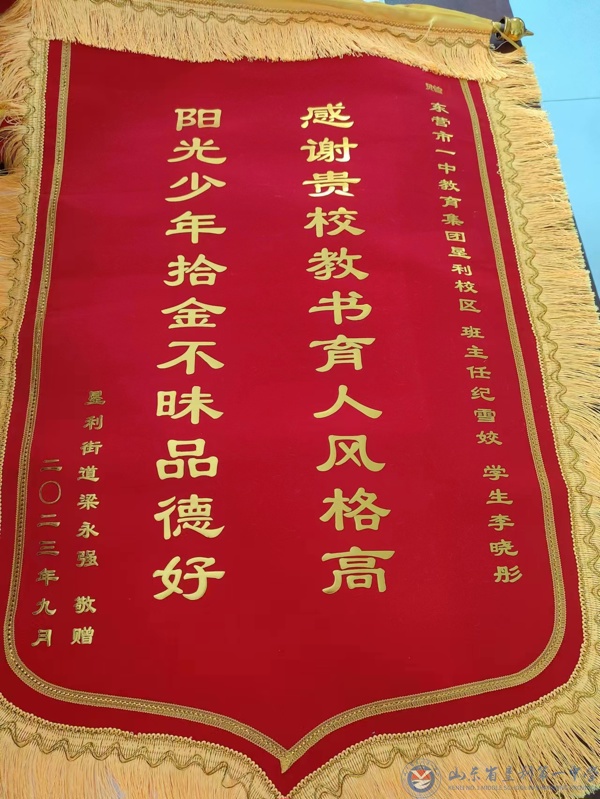 赠 东营市一中教育集团垦利校区 班主任纪雪姣 学生李晓彤
感谢贵校教书育人风格高
阳光少年拾金不昧品德好
垦利街道梁永强 敬赠
二〇二三年九月
山东省垦利第一中学